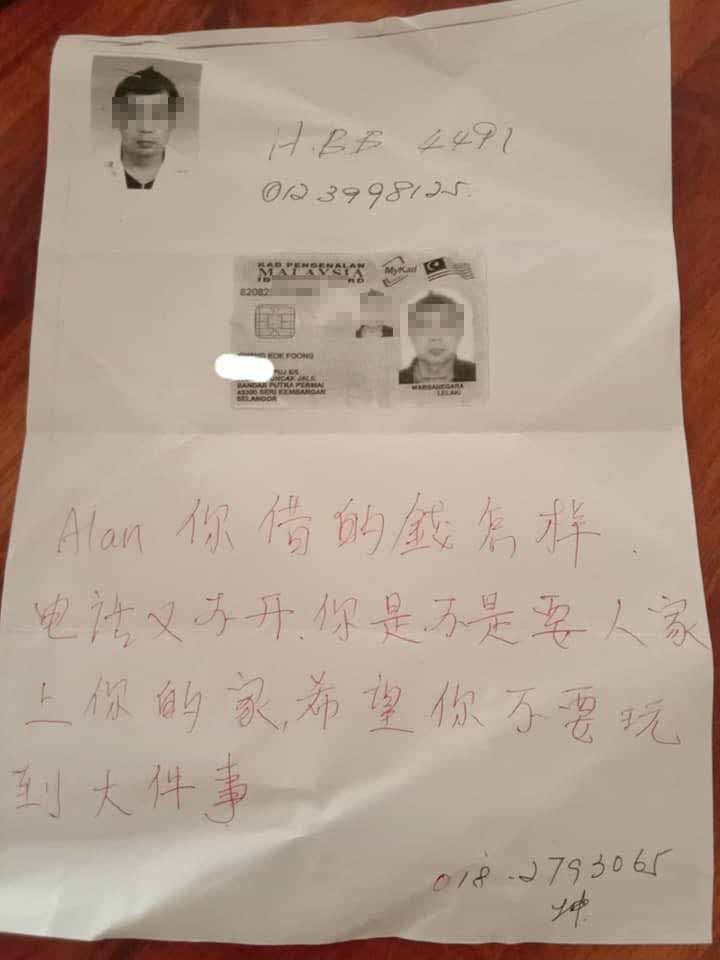 H.BB 4491
012 3998125.
KAD PENGENALAN
MALAYSIA
MyKad
KOK FOONG
BANDAR PUTRA PERMAI
43300 SERI KEMBANGAN
SELANGOR
WARGANEGARA
LELAKI
Alan 你借的錢怎样.
电话又不开.你是不是要人家
上你的家,希望你不要玩
到大件事
018-2793065
坤